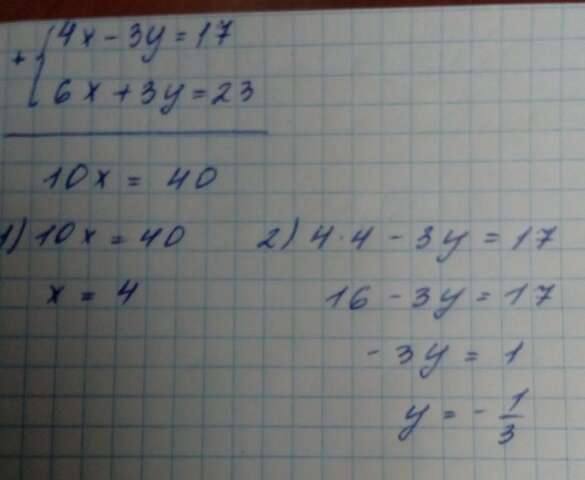 + { 4x - 3y = 17
6x + 3y = 23
10x = 40
1) 10x = 40
x = 4
2) 4 · 4 - 3y = 17
16 - 3y = 17
- 3y = 1
y = - 1/3